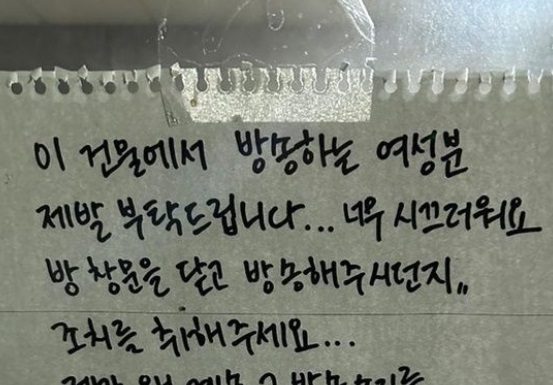 이 건물에서 방송하는 여성분
제발 부탁드립니다... 너무 시끄러워요
방 창문을 닫고 방송해주시던지,,
조치를 취해주세요...